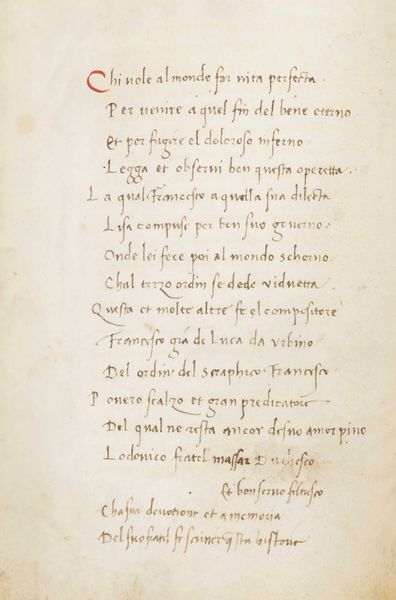 Chi vole al mondo far vita perfecta
Per venire a quel fin del bene eterno
Et per fugire el doloroso inferno
Legga et observi ben questa operetta
La qual Francesco a quella sua dilecta
Lisa compuse per ben suo governo
Onde lei fece poi al mondo scherno
Chal terzo ordin se dede viduetta
Questa et molte altre fe el compositore
Francesco già de Luca da Urbino
Del ordin del Seraphico Francesco
Povero scalzo et gran predicatore
Del qual ne resta ancor de suo amor pino
Lodovico fratel massar Duchesco
Et bon servo feltresco
Cha sua devotione et a memoria
Del suo fratel fe scriver qsta historie